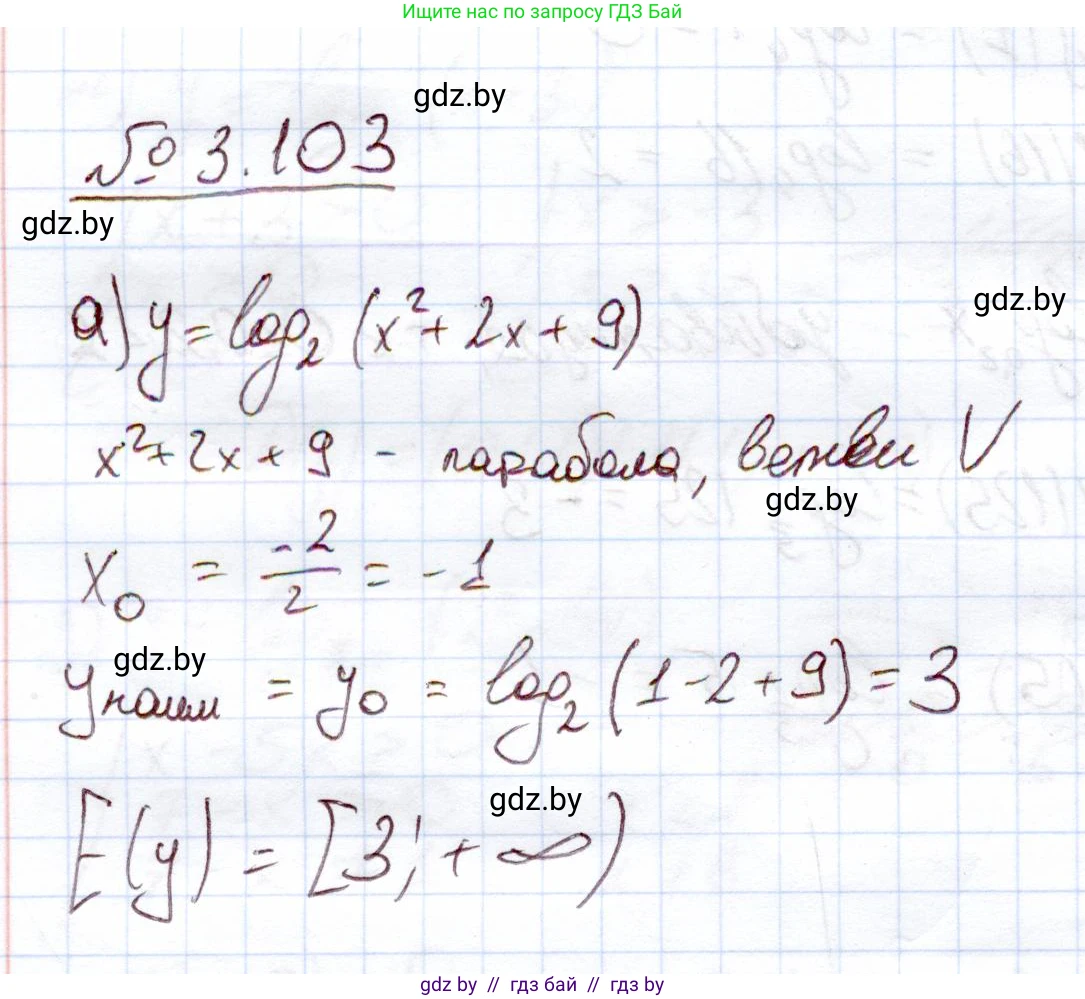 Ищите нас по запросу ГДЗ Бай
gdz.by
№ 3.103
gdz.by
а) y = log₂ (x² + 2x + 9)
gdz.by
x² + 2x + 9 - парабола, ветви V
gdz.by
x₀ = -2/2 = -1
gdz.by
yнаим = y₀ = log₂ (1-2+9) = 3
gdz.by
E(y) = [3; +∞)
gdz.by // гдз бай // гдз.бу